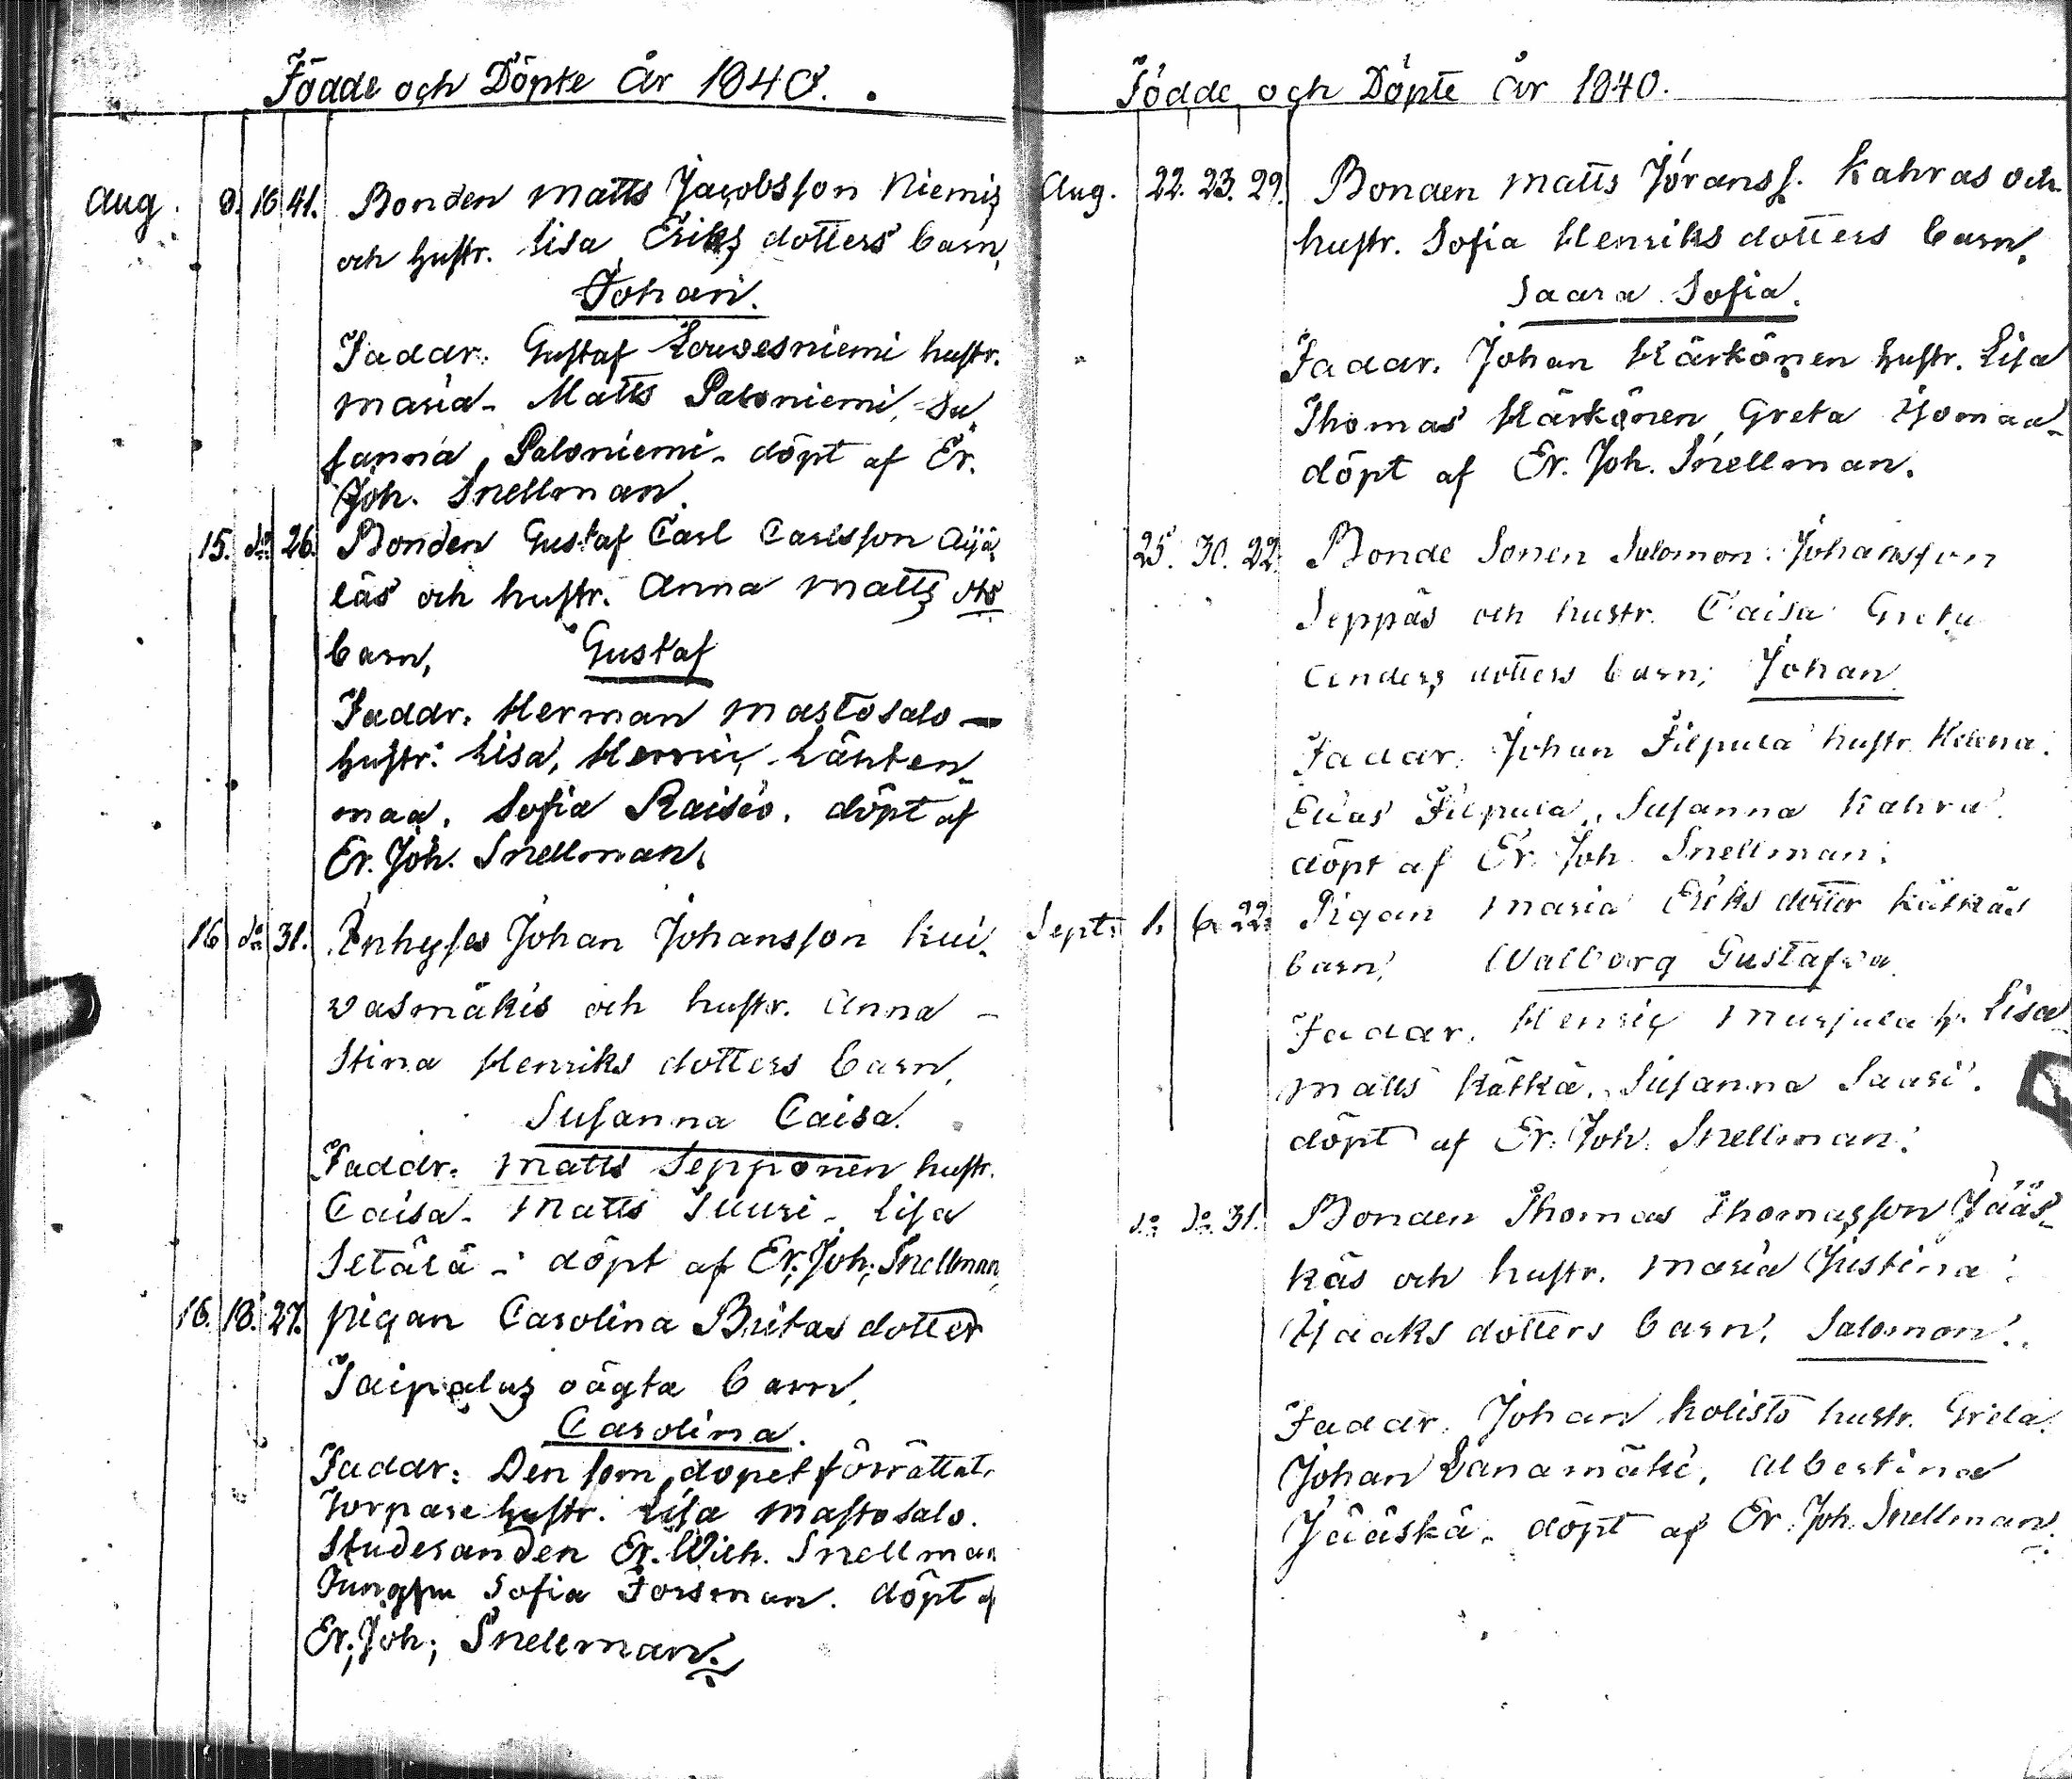 Födde och Döpte År 1840.
Aug. 8. 16 41. Bonden Matts Jacobsson Niemis
och hustr. Lisa Eriks dotters barn,
Johan.
Faddr. Gustaf Louvesniemi hustr.
Maria - Matts Paloniemi, Su
sanna Paloniemi - döpt af Er.
Joh. Snellman.
15. do 26. Bonden Gustaf Carl Carlsson Äijä
läs och hustr. Anna Matts dtrs
barn, Gustaf
Faddr. Herman Mastosalo -
hustr. Lisa, Henric Lähten-
maa, Sofia Raisio. döpt af
Er. Joh. Snellman.
16 do 31. Inhyses Johan Johansson Kui-
vasmäkis och hustr. Anna -
Stina Henriks dotters barn,
Susanna Caisa.
Faddr. Matts Sepponen hustr.
Caisa - Matts Suuri - Lisa
Setälä - döpt af Er. Joh. Snellman,
16. 18. 27. pigan Carolina Britas dotter
Saipalus oägta barn,
Carolina.
Faddr: Den som dopet förrättat.
Torpare hustr. Lisa Mastosalo.
Studeranden Er. Wilh. Snellman
Jungfru Sofia Forsman. döpt af
Er. Joh; Snellman.
Födde och Döpte År 1840.
Aug. 22. 23. 29. Bonden Matts Jöranss. Kahras och
hustr. Sofia Henriks dotters barn,
Saara Sofia.
Faddr. Johan Kärkönen hustr. Lisa
Thomas Kärkönen Greta Isomaa -
döpt af Er. Joh. Snellman.
25. 30. 22. Bonde Sonen Salomon Johansson
Seppäs och hustr. Caisa Greta
Anders dotters barn; Johan
Faddr. Johan Filpula hustr. Helena.
Elias Filpula, Susanna Kahra.
döpt af Er. Joh. Snellman.
Sept. 1. 6. 22. Pigan Maria Eriks dotter Kätkäs
barn, Walborg Gustafva.
Faddr. Henric Murjula h. Lisa
Matts Kätkä, Susanna Saari.
döpt af Er. Joh. Snellman.
do do 31. Bonden Thomas Thomasson Jääs-
käs och hustr. Maria Justina
Isaaks dotters barn, Salomon.
Faddr. Johan Kolisto hustr. Greta.
Johan Lanamäki, Albertina
Jääskä - döpt af Er. Joh. Snellman.